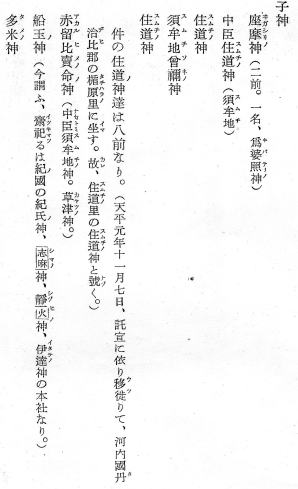 子神
座摩神（二前。一名、爲婆照神）
中臣住道神（須牟地）
住道神
須牟地曾禰神
住道神
件の住道神達は八前なり。（天平元年十一月七日、託宣に依り移徙りて、河内國丹
治比郡の楯原里に坐す。故、住道里の住道神と號く。）
赤留比賣命神（中臣須牟地神。草津神。）
船玉神（今謂ふ、齋祀るは紀國の紀氏神、志麻神、靜火神、伊達神の本社なり。）
多米神